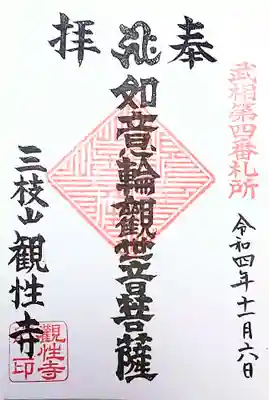 奉拝
武相第四番札所
令和四年十一月六日
如意輪觀世音菩薩
三枝山觀性寺
觀性寺印